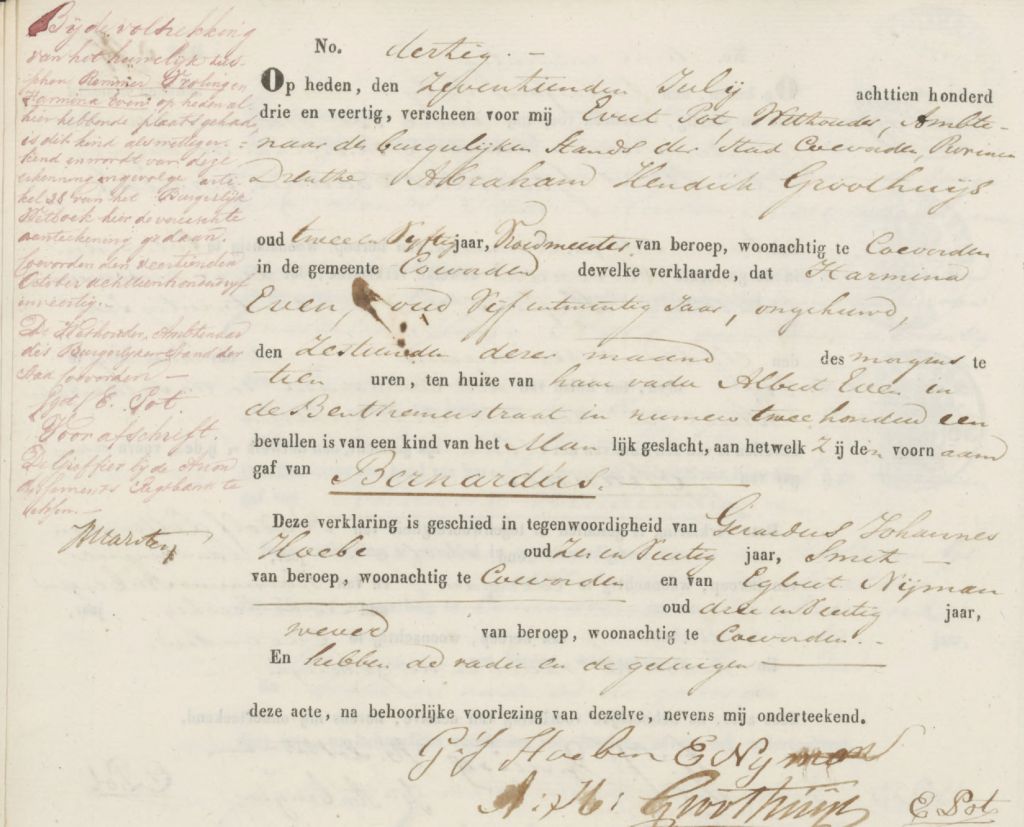 Bij de voltrekking
van het huwelijk tus-
schen Remmer Vrolingen
Harmina Even op heden al-
hier hebbende plaats gehad,
is dit kind als wettig er-
kend en wordt van deze
erkenning ingevolge arti-
kel 28 van het Burgerlijk
Wetboek hier de vereischte
aanteekening gedaan.
Coevorden den veertienden
October achttienhonderd vijf
en veertig.
De Wethouder, Ambtenaar
des Burgerlijken Stand der
Stad Coevorden
(get) E. Pot.
Voor afschrift.
De Griffier bij de Arron
dissements Regtbank te
Assen
No. dertig.
Op heden, den Zeventienden Julij achttien honderd
drie en veertig, verscheen voor mij Evert Pot, Wethouder, Ambte-
naar des burgerlijken Stands der Stad Coevorden, Provincie
Drenthe Abraham Hendrik Groothuijs
oud twee en vijftig jaar, Vroedmeester van beroep, woonachtig te Coevorden
in de gemeente Coevorden dewelke verklaarde, dat Harmina
Even, oud Vijf en twintig Jaar, ongehuwd,
den Zestienden dezer maand des morgens te
tien uren, ten huize van haar vader Albert Even in
de Benthemerstraat in numero twee honderd een
bevallen is van een kind van het Man lijk geslacht, aan hetwelk Z ij den voorn aam
gaf van Bernardus.
Deze verklaring is geschied in tegenwoordigheid van Gerardus Johannes
Hoebe oud Zes en Veertig jaar, Smit
van beroep, woonachtig te Coevorden en van Egbert Nijman
oud drie en Veertig jaar,
wever van beroep, woonachtig te Coevorden.
En hebben de vader en de getuigen
deze acte, na behoorlijke voorlezing van dezelve, nevens mij onderteekend.
G J Hoeben E Nyman
A: H: Groothuijs E Pot